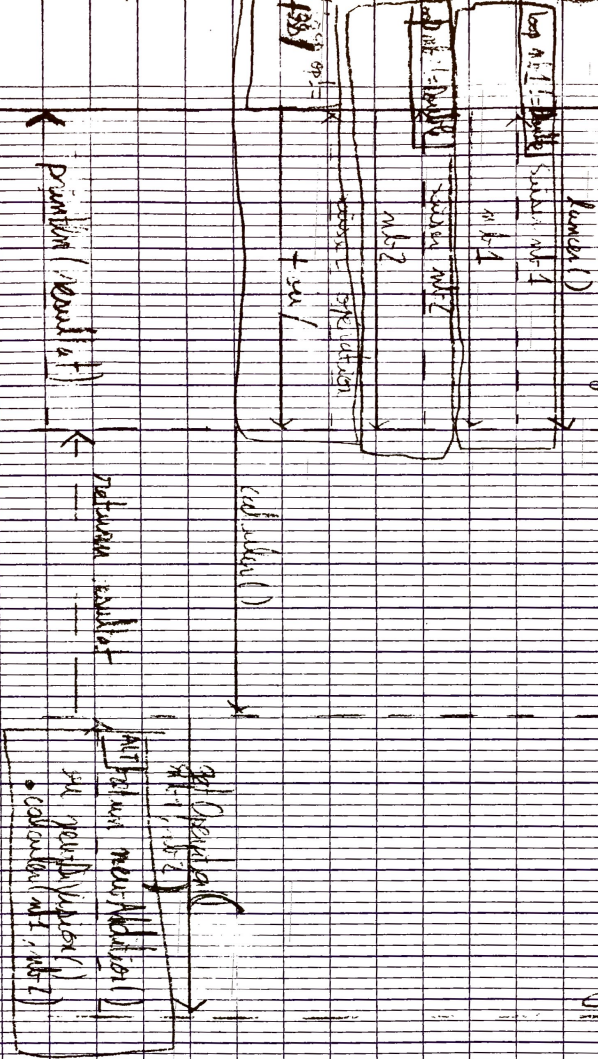 lancer()
loop nb-1 != Double
saisir nb-1
nb-1
loop nb-2 != Double
saisir nb-2
nb-2
saisir operation
+ ou /
calculer()
getOperation(
nb-1, nb-2)
ALT
return new Addition()
ou new Division()
.calculer(nb1, nb-2)
return resultat
println(resultat)